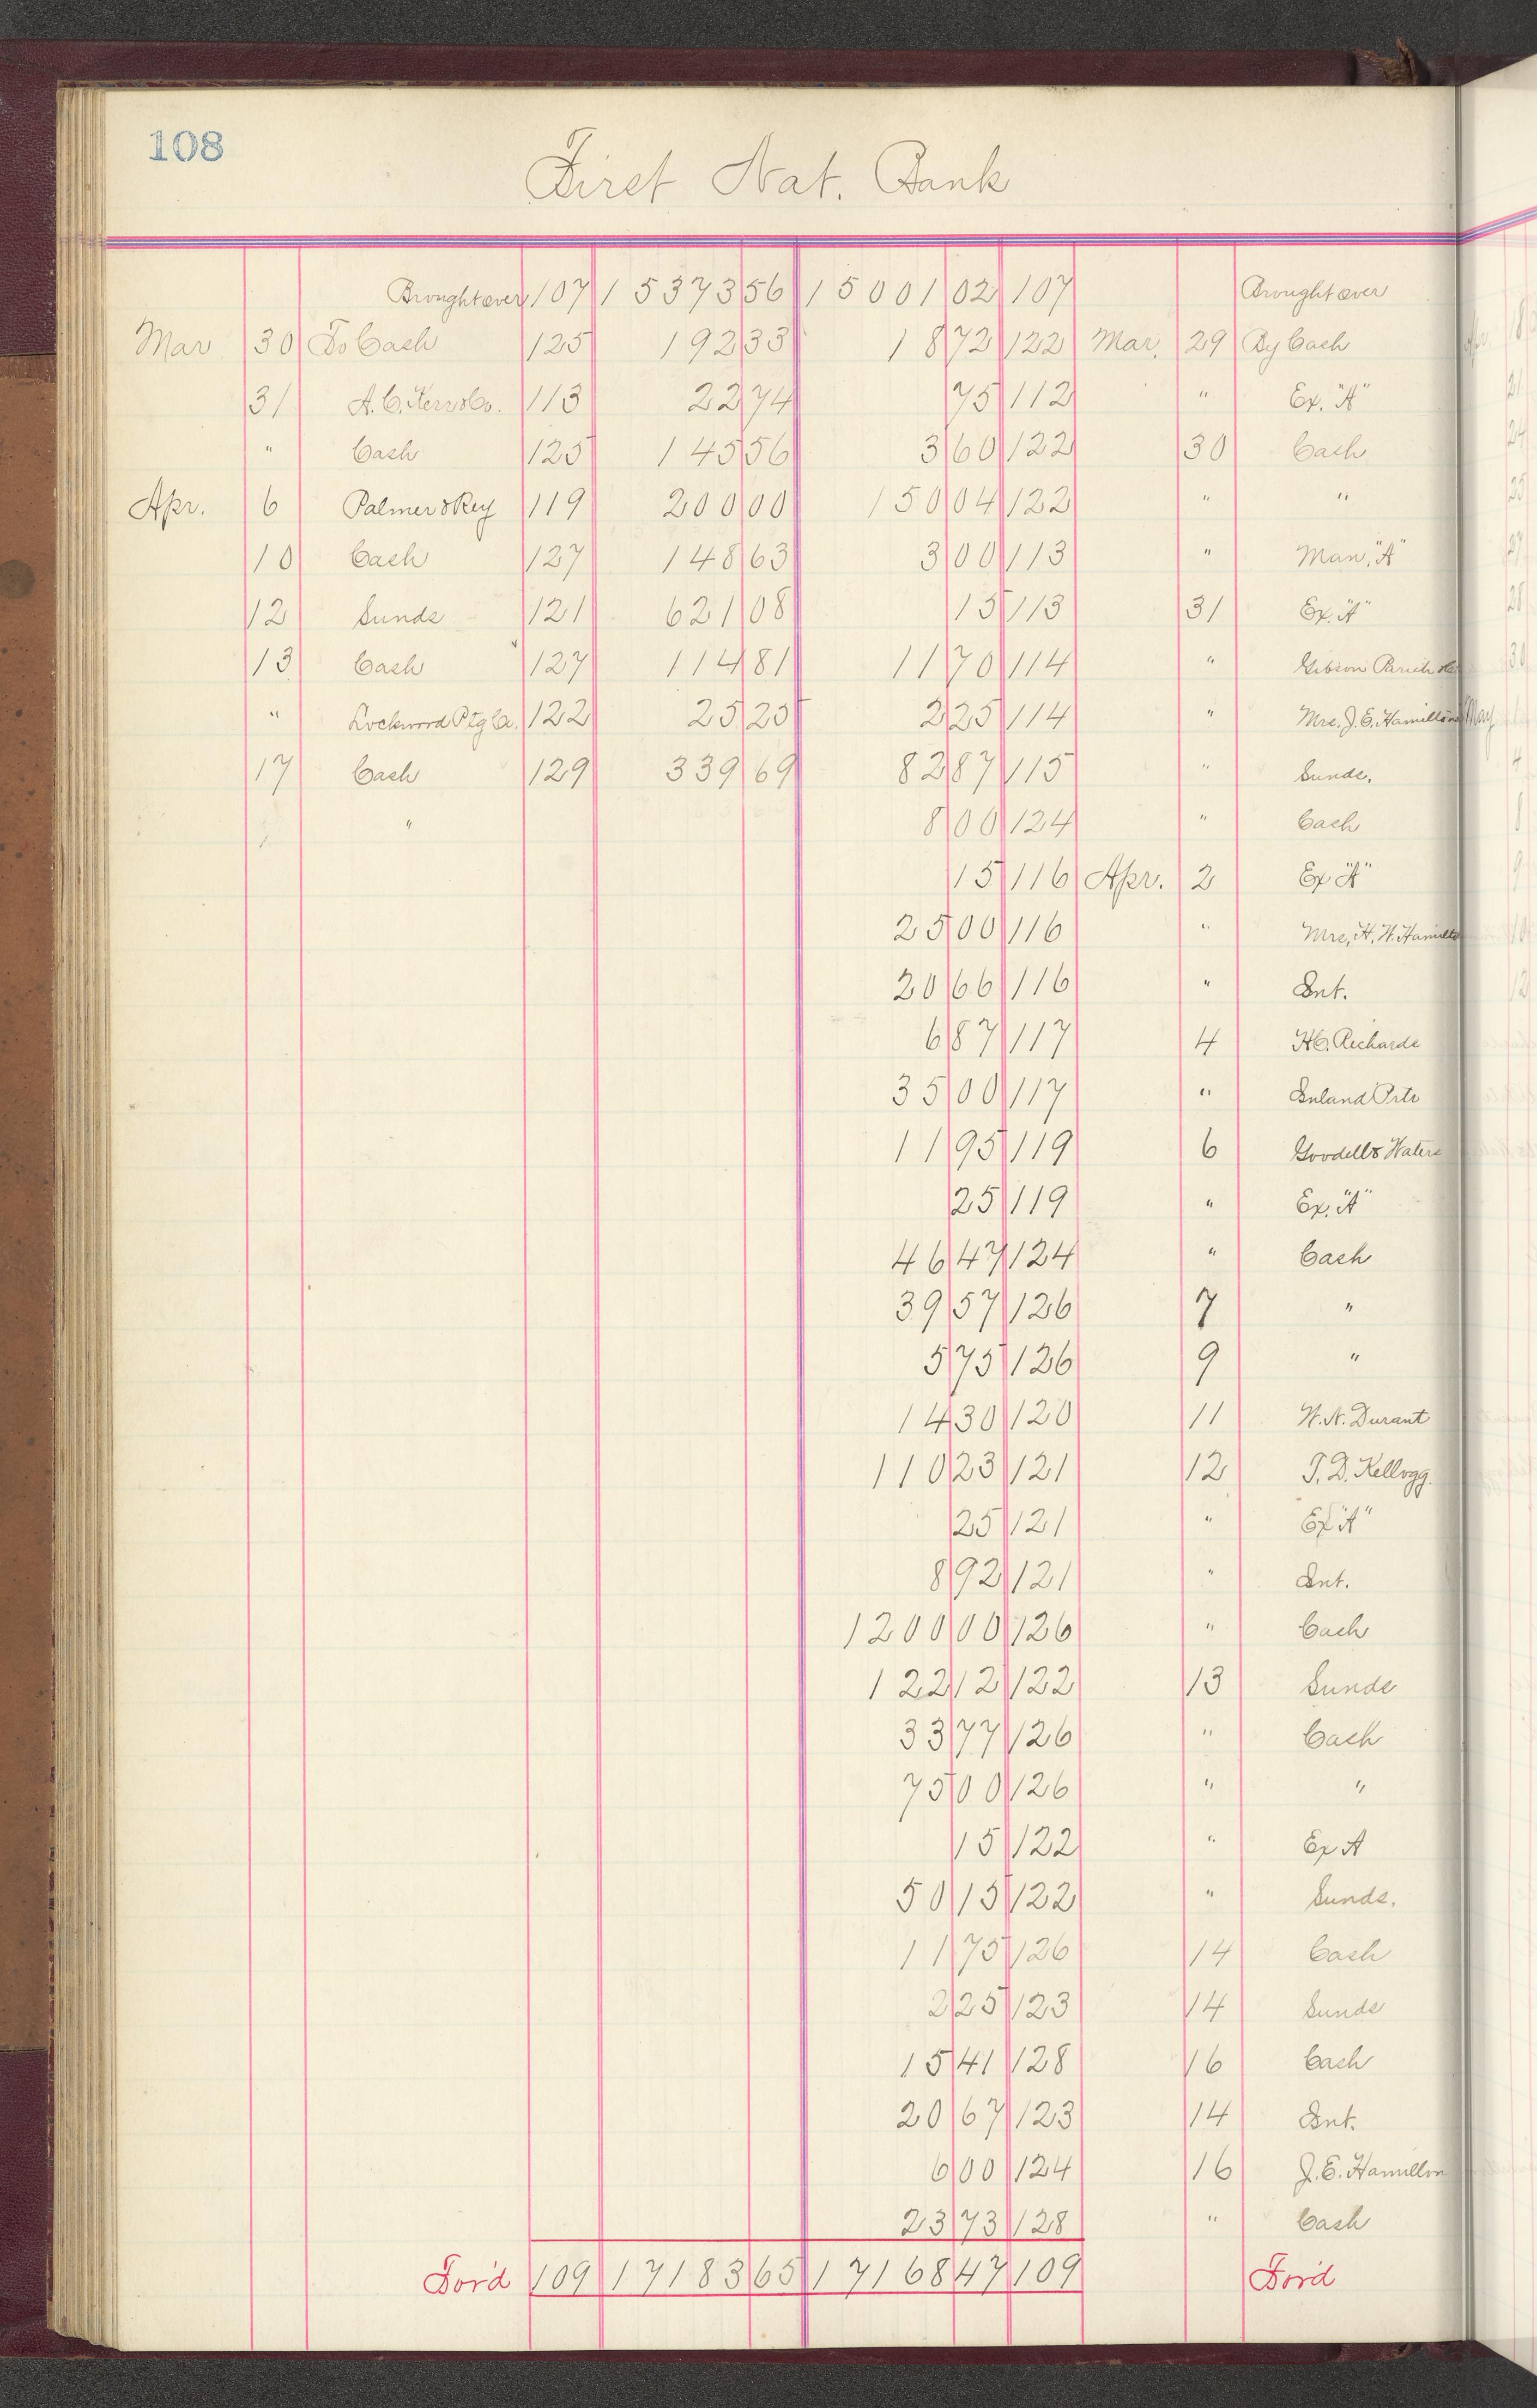 108
First Nat. Bank
Brought over 107 15373 56 15001 02 107 Brought over
Mar 30 To Cash 125 192 33 18 72 122 Mar. 29 By Cash
31 A.C. Kerr & Co. 113 22 74 75 112 " Ex. "A"
" Cash 125 145 56 3 60 122 30 Cash
Apr. 6 Palmer & Rey 119 200 00 150 04 122 " "
10 Cash 127 148 63 3 00 113 " Man. "A"
12 Sunds 121 621 08 15 113 31 Ex. "A"
13 Cash 127 114 81 11 70 114 " Gibson Parish &
" Lockwood Ptg Co. 122 25 25 2 25 114 " Mrs. J. E. Hamilton
17 Cash 129 339 69 82 87 115 " Sunds.
" 8 00 124 " Cash
15 116 Apr. 2 Ex "A"
25 00 116 " Mrs. H. W. Hamilto
20 66 116 " Int.
6 87 117 4 H.C. Richards
35 00 117 " Inland Prtr
11 95 119 6 Goodell & Waters
25 119 " Ex. "A"
46 47 124 " Cash
39 57 126 7 "
5 75 126 9 "
14 30 120 11 W. N. Durant
110 23 121 12 T. D. Kellogg.
25 121 " Ex "A"
8 92 121 " Int.
1200 00 126 " Cash
122 12 122 13 Sunds
33 77 126 " Cash
75 00 126 " "
15 122 " Ex A
50 15 122 " Sunds.
11 75 126 14 Cash
2 25 123 14 Sunds
15 41 128 16 Cash
20 67 123 14 Int.
6 00 124 16 J. E. Hamilton
23 73 128 " Cash
For'd 109 17183 65 17168 47 109 For'd